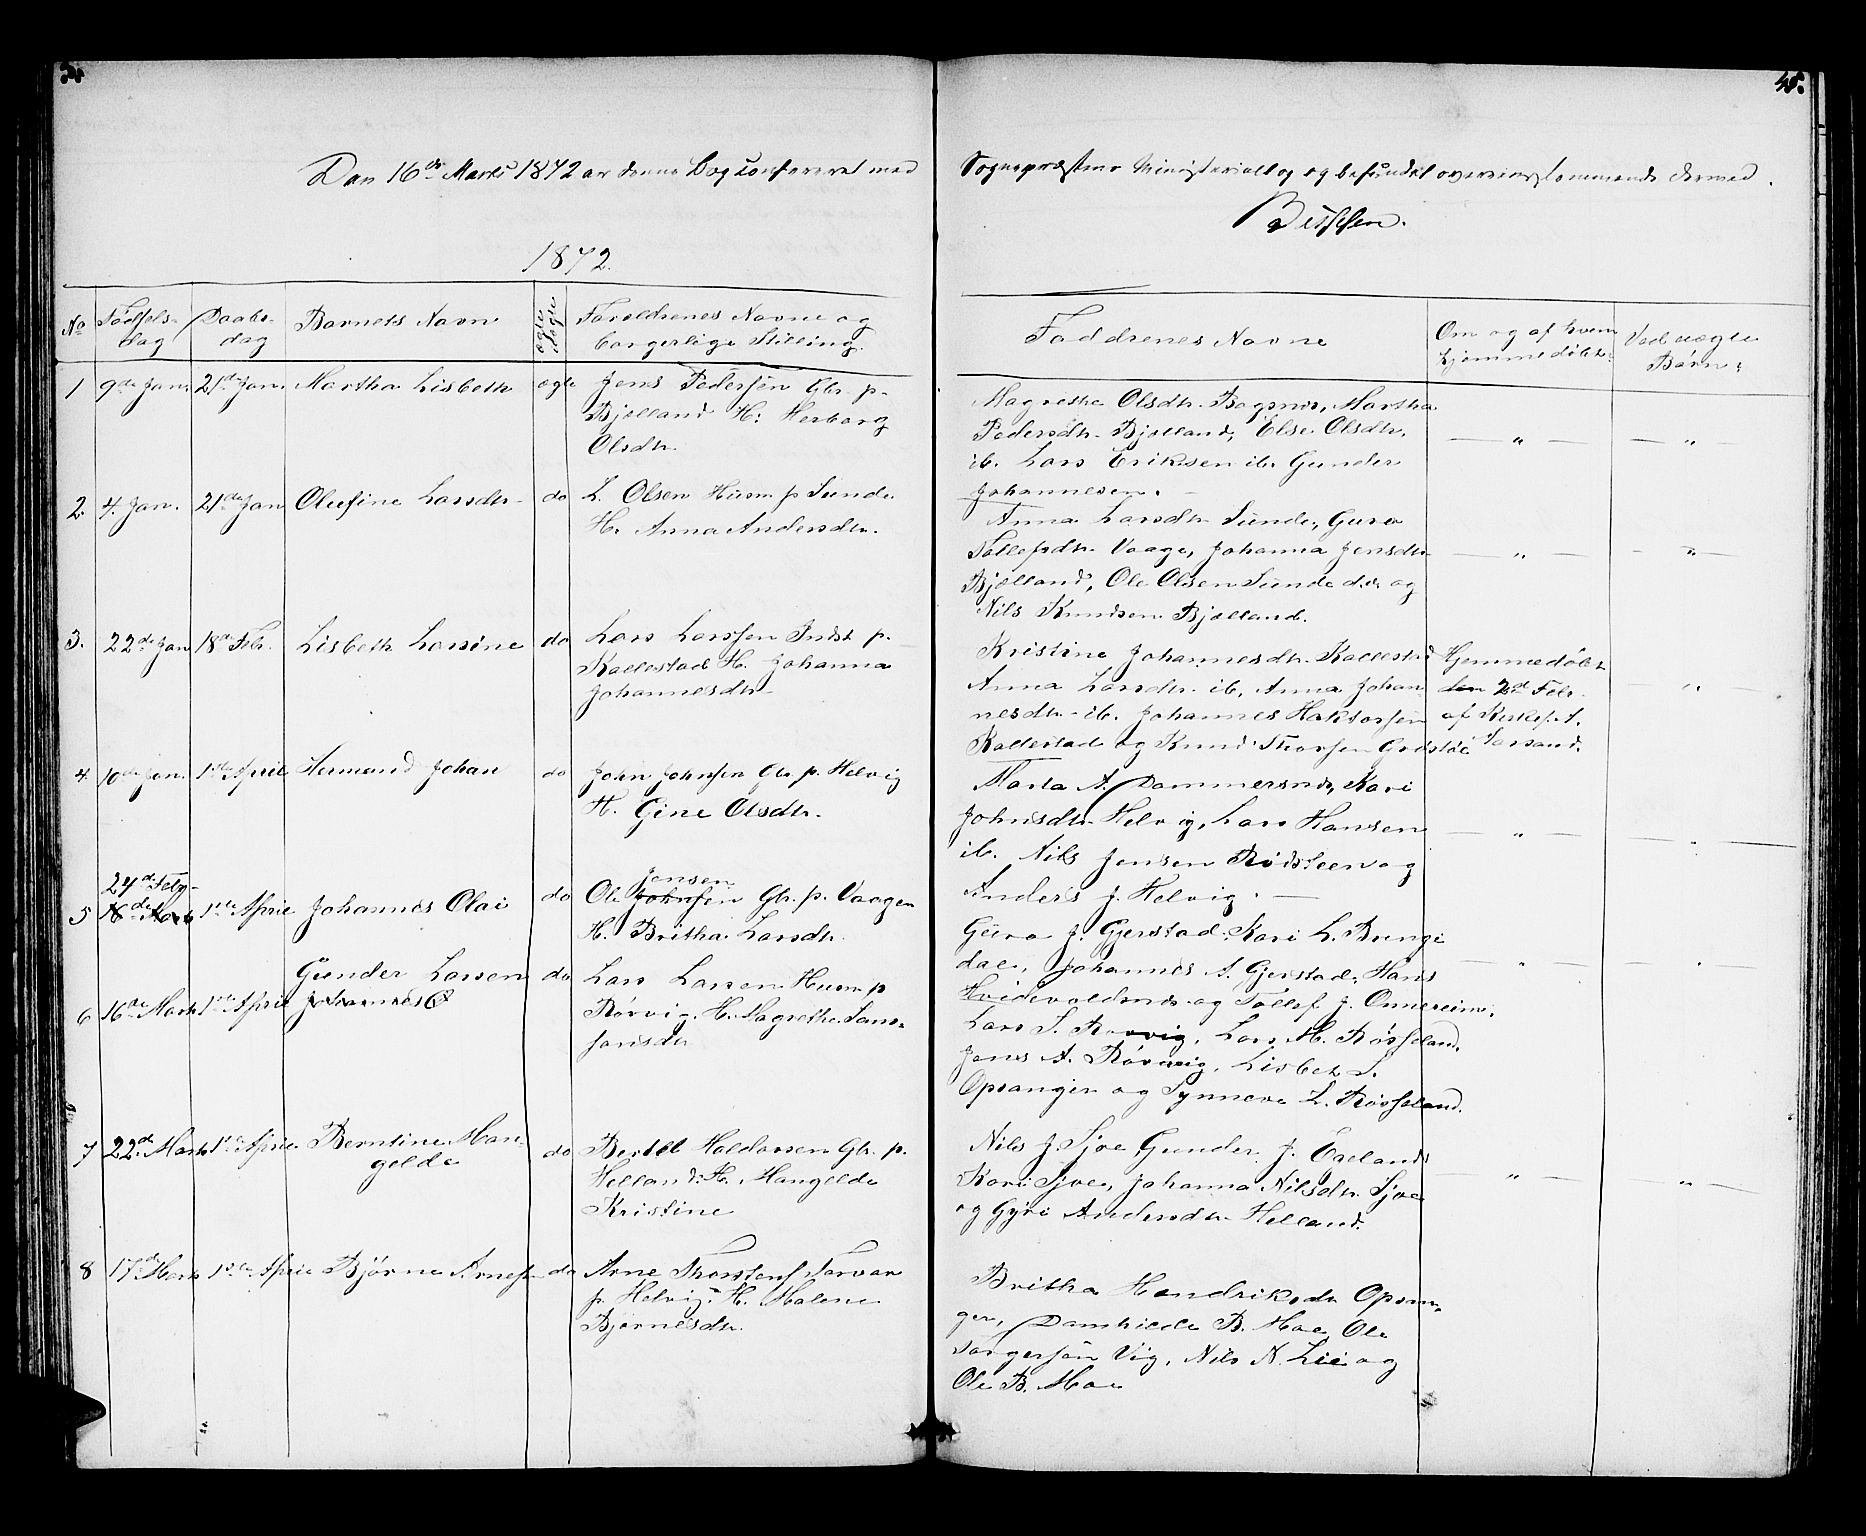 45.
Den 16de Marts 1872 er denne Bog confereret med Sognepræstens Ministerialbog og befundet overeensstemmende dermed.
1872.
No
Fødsels-
dag
Daabs-
dag
Barnets Navn
ægte
uægte
Foreldrenes Navne og
borgerlige Stilling.
Faddrenes Navne
Om og af hvem
hjemmedøbt.
Ved uægte
Børn:
1 9de Jan. 21de Jan. Martha Lisbeth ægte Jens Pedersen Gbr. p.
Bjelland H. Herborg
Olsdtr.
Magrethe Olsdtr. Bagsnes, Martha
Pedersdtr. Bjelland, Else Olsdtr.
ib. Lars Eriksen ib. Gunder
Johannesen.
— " —
— " —
2. 4. Jan. 21de Jan Olufine Larsdtr. do L. Olsen Husm p Sunde
H. Anna Andersdtr.
Anna Larsdtr. Sunde, Guro
Tollefsdtr. Vaage, Johanna Jensdtr
Bjelland, Ole Olsen Sunde do. og
Nils Knudsen Bjelland.
— " —
— " —
3. 22de Jan 18de Febr. Lisbeth Larsine do Lars Larssen Indst p.
Kallestad H. Johanna
Johannesdtr.
Kristine Johannesdtr. Kallestad
Anna Larsdtr. ib. Anna Johan
nesdtr. ib. Johannes Haktorsen
Kallestad og Knud Thorsen
Hjemmedøbt
den 2de Febr.
af Kirkes.
— " —
4. 10de Jan. 1ste April Hermand Johan do John Johnsen Gbr. p. Helvig
H. Gine Olsdtr.
Marta A. Dammersnes, Kari
Johnsdtr. Helvig, Lars Hansen
ib. Nils Jensen Rødsteen og
Anders J. Helvig. —
— " —
— " —
5 24de Feby. 1ste April Johannes Olai do Ole Jensen Johnsen Gbr. p. Vaagen
H. Britha Larsdtr.
Guro J. Gjerstad, Kari L. Bringe
dal, Johannes A. Gjerstad, Hans
Hvidevoldsnes og Tollef J. Ommereim.
— " —
6 16de Marts 1ste April Gunder Larsen
Johannes do Lars Larsen Husm p
Rørvig. H. Magrethe Sam-
sonsdtr
Lars S. Rørvig, Lars M. Røsseland,
Jens A. Rørvig, Lisbet S.
Opsanger og Synneve L. Røsseland.
7 22de Marts 1ste April Berntine Man-
gelda do Bertel Haldorsen Gbr. p.
Helland. H. Mangelda
Kristine
Nils J. Sjoe Gunder J. Eeland
Kari Sjoe, Johanna Nilsdtr. Sjoe
og Gyri Andersdtr. Helland.
— " —
— " —
8 17de Marts 1ste April Bjørne Arnes. do Arne Thorstens. Farver
p. Helvig. H. Malene
Bjørnesdtr.
Britha Hendriksdtr. Opsan-
ger, B. Moe, Ole
Torgersen Vig, Nils N. Lie og
Ole B. Moe